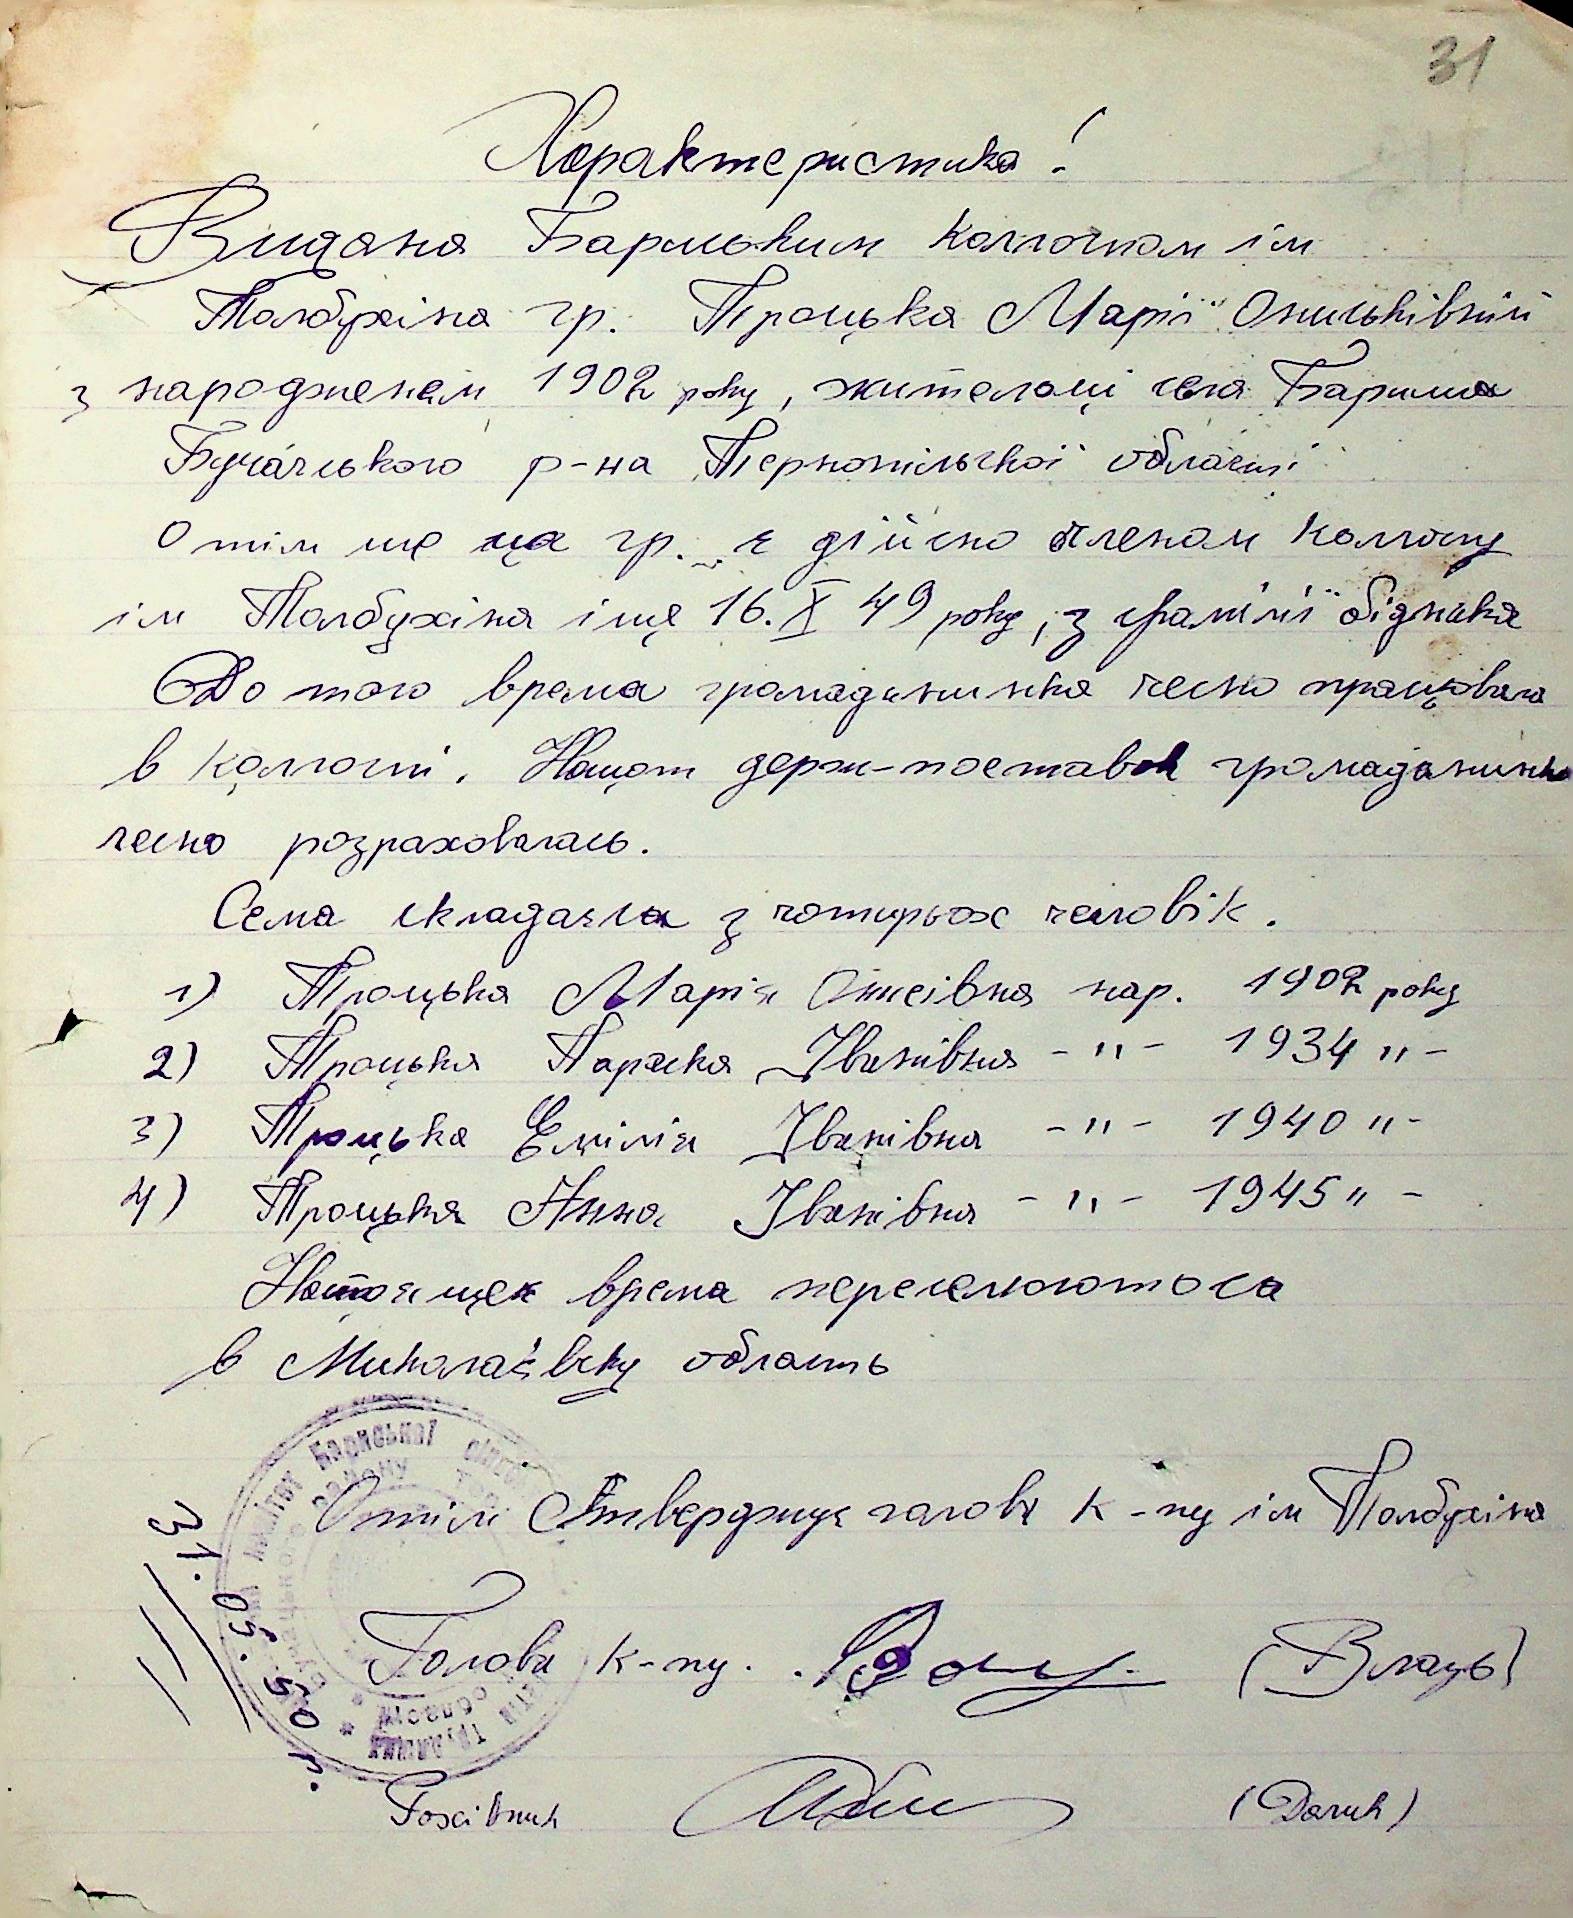 31
Характеристика!
Видана Бариським колгоспом ім
Толбухіна гр. Троцька Марії Ониськівній
з народженям 1902 року, жителоці села Бариша
Бучацького р-на Тернопільської області
О тім ще ця гр. є дійсно членом колгоспу
ім Толбухіна іще 16.X 49 року, з фамілії бідняка
До того врема громадянинка чесно працювала
в колгоспі. Нащот держ-поставок громадянинка
чесно розраховалась.
Сема складаєся з чотирьох чоловік.
1) Троцька Марія Онисівна нар. 1902 року
2) Троцька Параска Іванівна -"- 1934 "-
3) Троцька Емілія Іванівна -"- 1940 "-
4) Троцька Анна Іванівна -"- 1945 "-
Настоящея врема переселюютося
в Миколаївську область
Отім Ствержує голова к-пу ім Толбухіна
31.05.50 р.
Голова к-пу. (Влащь)
Рохівник